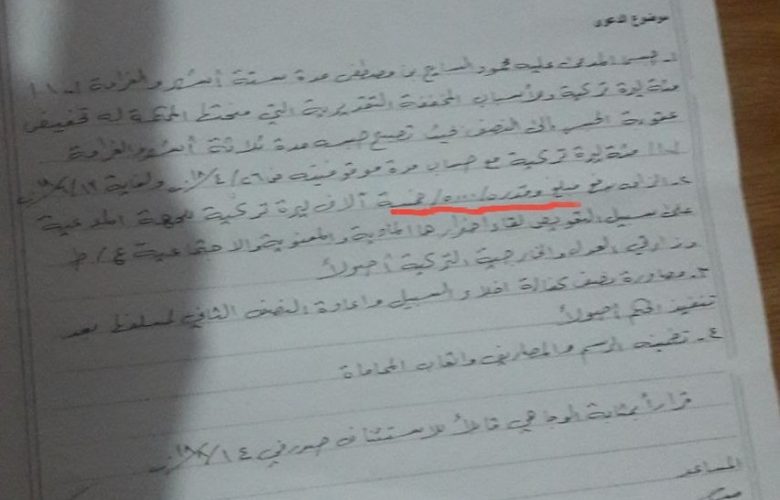 موضوع الدعوى
١- حبس المدعى عليه محمود السايح بن مصطفى مدة ستة أشهر والغرامة /١٠٠/
مئة ليرة تركية وللأسباب المخففة التقديرية التي منحتها المحكمة له تخفيض
عقوبة الحبس إلى النصف حيث تصبح حبسه مدة ثلاثة أشهر والغرامة
/١٠٠/ مئة ليرة تركية مع حساب مدة موقوفيته من ٢٦/٤/ ولغاية
٢- الزامه بدفع مبلغ وقدره /٥٠٠٠/ خمسة آلاف ليرة تركية للجهة المدعية
على سبيل التعويض لقاء أضرارها المادية والمعنوية والاجتماعية
وزارتي العدل والخارجية التركية أصولاً
٣- ومصادرة نصف كفالة اخلاء السبيل واعادة النصف الثاني لمسلفها بعد
تنفيذ الحكم أصولاً
٤- تضمينه الرسم والمصاريف واتعاب المحاماة
قراراً بمثابة الوجاهي قابلاً للاستئناف صدر في
المساعد